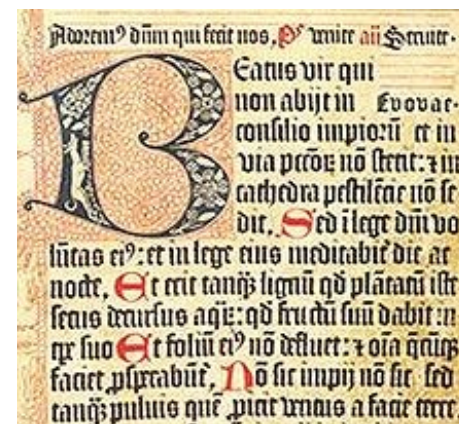 Adorem⁹ dn̄m qui fecit nos, P̄s venite an̄ Servite.
Beatus vir qui
non abijt in Evovae.
consilio impiorū et in
via pcc̄oꝝ nō stetit: ⁊ in
cathedra pestilēcie nō se⸗
dit, Sed ī lege dn̄i vo
lūtas ei⁹: et in lege eius meditabit̄ die ac
nocte, Et erit tanqꝫ lignū qd̄ plātatū iste
secus decursus aqꝝ: qd̄ fructū suū dabit in
tꝑe suo Et foliū ei⁹ nō defluet: ⁊ oīa q̄cūqꝫ
faciet ꝓsperabūt̄, Nō sic impij nō sic sed
tanqꝫ puluis quē ꝓicit ventus a facie terre,